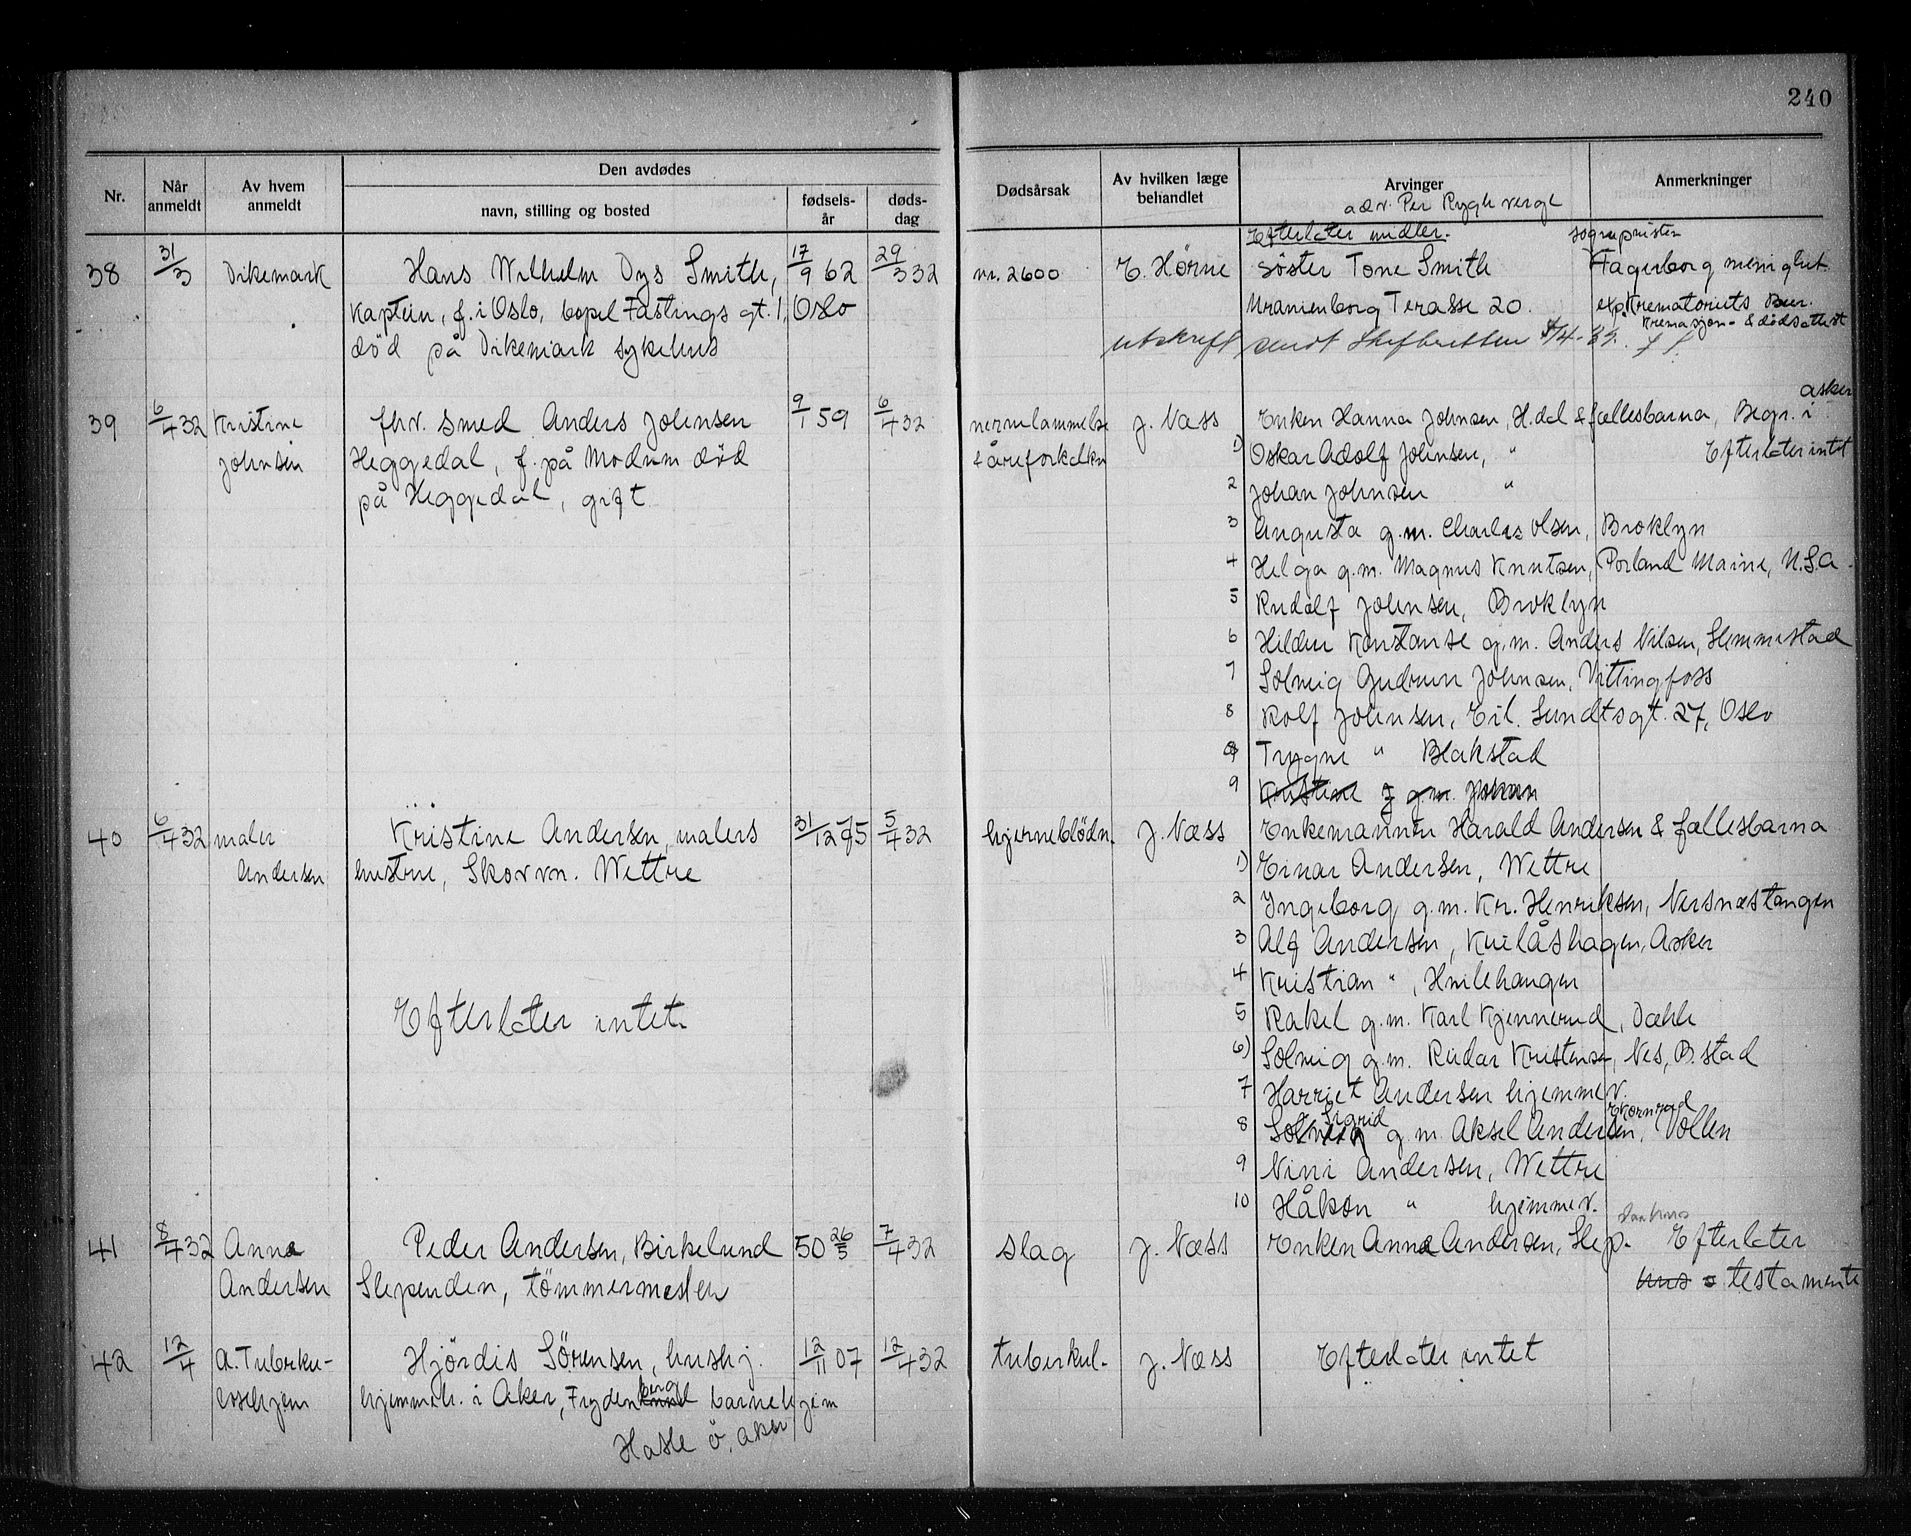 240
Nr. Når anmeldt Av hvem anmeldt Den avdødes navn, stilling og bosted fødselsår dødsdag Dødsårsak Av hvilken læge behandlet Arvinger Anmerkninger
adv. Per Rygh verge
Efterlater midler. sognepristen
38 31/3 Dikemark Hans Wilhelm Dys Smith, 17/9 62 29/3 32 nr. 2600 E. Hörne Søster Tone Smith Fagerborg menighet
Kaptein, f. i Oslo, bopel Fastings gt. 1, Oslo Uranienborg Terasse 20. exp. Krematoriets Bur.
Kremasjon- & dødsattest
død på Dikemark sykehus utskrift sendt Skifteretten
asker
39 6/4 32 Kristine fhv. smed Anders Johnsen 9/1 59 6/4 32 nervelammelse J. Næss Enken Hanna Johnsen, H.dal & fællesbarna, Begr. i
Johnsen Heggedal, f. på Modum død & åreforkalkn 1) Oskar Adolf Johnsen, " Efterlater intet
på Heggedal, gift. 2 Johan Johnsen "
3 Augusta g.m. Charles Olsen, Broklyn
4 Helga g.m. Magnus Knutsen, Porland Maine, U.S.A.
5 Rudolf Johnsen, Broklyn
6 Hildur Konstanse g.m. Anders Nilsen, Slemmestad
7 Solveig Gudrun Johnsen, Vittingfoss
8 Rolf Johnsen, Eil. Sundtsgt. 27, Oslo
9 Trygve " Blakstad
9 Kristine g.m. Johan
40 6/4 32 maler Kristine Andersen, malers 31/12 75 5/4 32 hjerneblødn. J. Næss Enkemannen Harald Andersen & fællesbarna
Andersen hustru, Skovvn. Wettre 1) Einar Andersen, Wettre
2 Ingeborg g.m. Kr. Henriksen, Nersnæstangen
3 Alf Andersen, Knilåshagen, Asker
4 Kristian ", Hvilehaugen
Efterlater intet.
5 Rakel g.m. Karl Kjennerud, Dæhle
6) Solveig g.m. Reidar Kristensen, Nes, B.stad
7 Harriet Andersen hjemmev.
Sigrid Kornrud
8 Solveig g.m. Aksel Andersen, Vollen
9 Nini Andersen, Wettre
10 Håkon " hjemmev.
41 8/4 32 Anna Peder Andersen, Birkelund 50 26/5 7/4 32 slag J. Næss Enken Anna Andersen, Slep. Efterlater
Andersen Slependen, tømmermester hus o testamente
42 12/4 A. Tuberku- Hjördis Sörensen, hushj. 12/11 07 12/4 32 tuberkul- J. Næss Efterlater intet
losehjem hjemmeh. i Aker, Frydenberg barnehjem
Hasle ö. aker